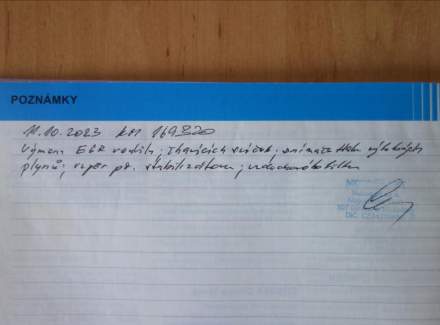 POZNÁMKY
11.10.2023 KM 169820
Výmena EGR ventilu; žhavících svíček; snímače tlak výfukových
plynů; vzper př. stabilizátoru; vzduchového filtru